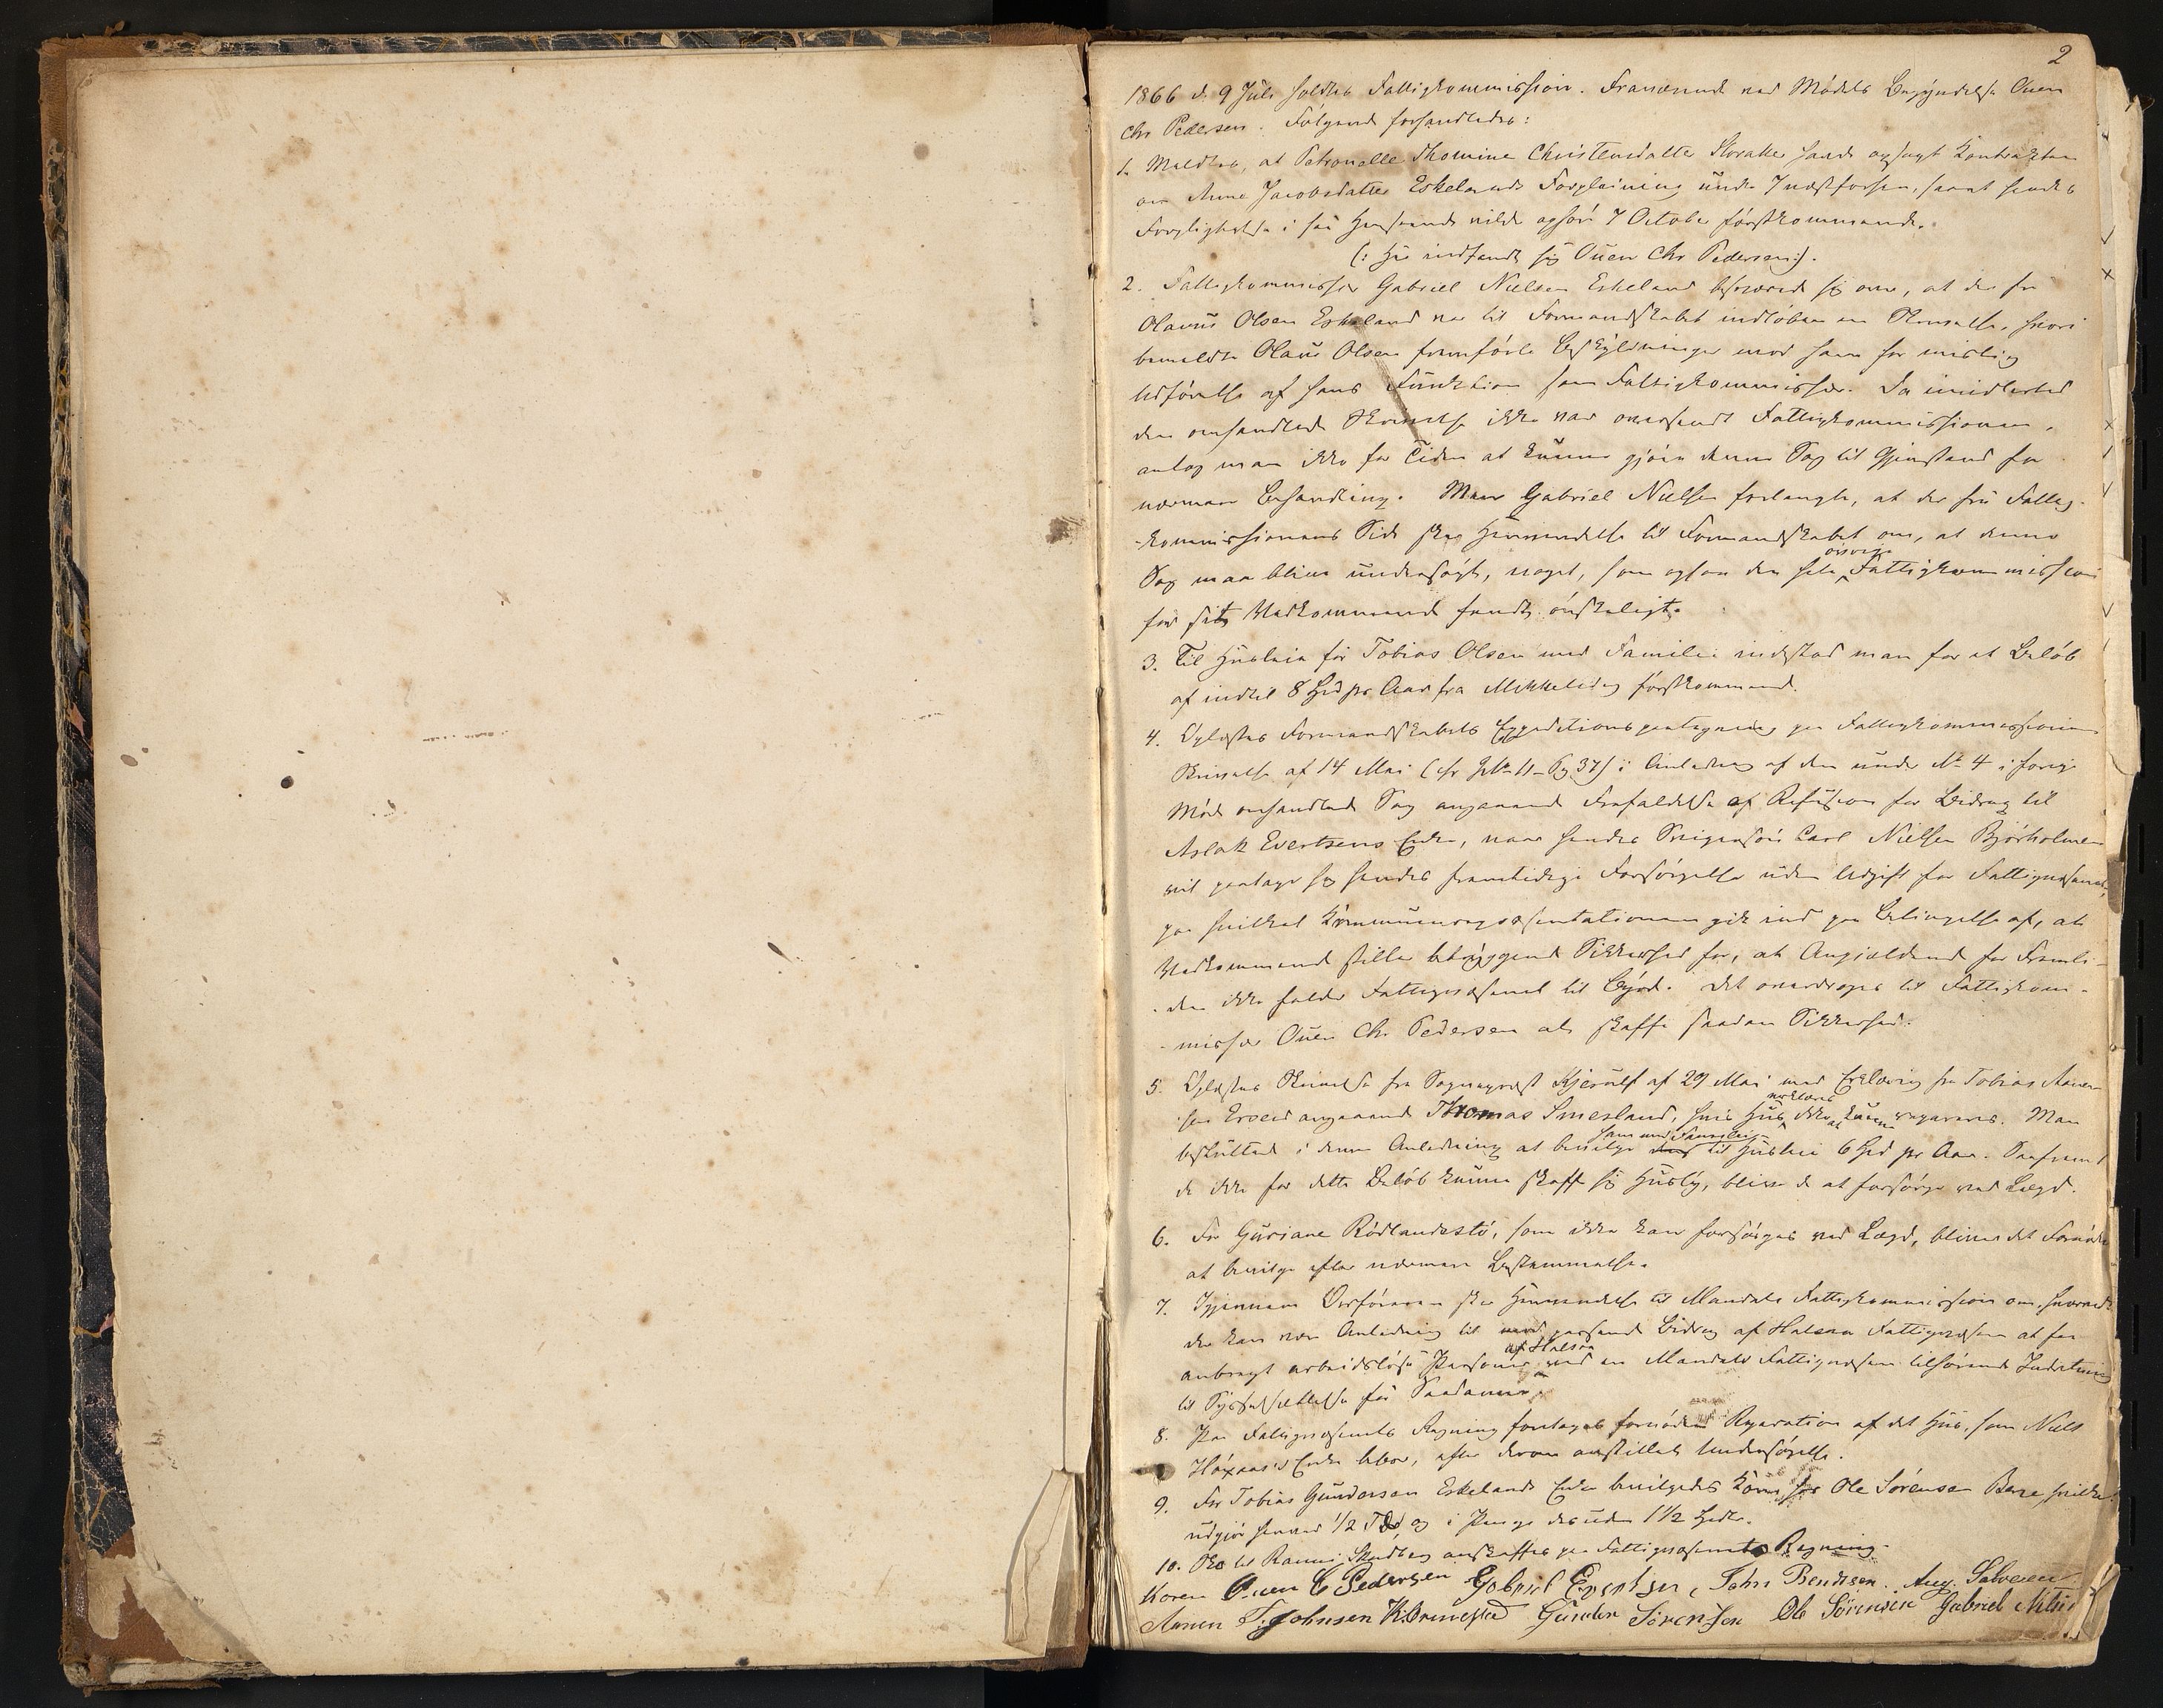 2
1866 d. 9 Juli holdtes Fattigkommission. Fraværende ved Mødets Begyndelse Ouen
Chr Pedersen. Følgende forhandledes:
1. Meldtes, at Petronelle Thomine Christensdatter Skoralle havde opsagt Kontrakten
om Anne Jacobsdatter Eskelands Forpleining under 7næstforhen, samt hendes
Forpligtelse i saa Henseende vilde ophøre 7 October førstkommende.
(: Her indfandt sig Ouen Chr Pedersen:).
2. Fattigkommissær Gabriel Nielsen Eskeland besværede sig over, at der fra
Olaus Olsen Eskeland var til Formandskabet indløben en Skrivelse, hvori
bemeldte Olaus Olsen fremførte Beskyldninger mod ham for mislig
Udførelse af hans Funktion som Fattigkommissær. Da imidlertid
den omhandlede Skrivelse ikke var oversendt Fattigkommissionen,
antog man ikke for Tiden at kunne gjøre denne Sag til Gjenstand for
nærmere Behandling. Men Gabriel Nielsen forlangte, at der fra Fattig-
-kommissionens Side sker Henvendelse til Formandskabet om, at denne
Sag maa blive undersøgt, noget, som ogsaa den hele øvrige Fattigkommission
for sit Vedkommende fandt ønskeligt.
3. Til Husleie for Tobias Olsen med Familie indestod man for et Beløb
af indtil 8 Spd pr Aar fra Mikkelsdag førstkommende.
4. Oplæstes Formandskabets Expeditionspaategning paa Fattigkommissionens
Skrivelse af 14 Mai (cfr No 11 - Pg 37) i Anledning af den under No 4 i forrige
Møde omhandlede Sag angaaende Frafaldelse af Refusion for Bidrag til
Aslak Evertsens Enke, naar hendes Svigersøn Carl Nielsen Bjørholmen
vil paatage sig hendes fremtidige Forsørgelse uden Udgift for Fattigvæsenet,
paa hvilket Kommunerepræsentationen gik ind paa Betingelse af, at
Vedkommende stiller betryggende Sikkerhed for, at Angjældende for Fremti-
-den ikke falder Fattigvæsenet til Byrde. Det overdroges til Fattigkom-
-missær Ouen Chr Pedersen at skaffe saadan Sikkerhed.
5. Oplæstes Skrivelse fra Sogneprest Kjerulf af 29 Mai med Erklæring fra Tobias Aanen-
sen Erveid angaaende Thomas Smesland, hvis Hus erklæres ikke at kunne repareres. Man
besluttede i denne Anledning at bevilge ham med Familie til Husleie 6 Spd pr Aar. Saafremt
de ikke for dette Beløb kunne skaffe sig Husly, blive de at forsørge ved Lægd.
6. For Guriane Rødlandsstø, som ikke kan forsørges ved Lægd, bliver det Fornødne
at bevilge efter nærmere Bestemmelse.
7. Igjennem Ordføreren sker Henvendelse til Mandals Fattigkommission om, hvorvidt
der kan være Anledning til mod passende Bidrag af Halsaa Fattigvæsen at faa
anbragt arbeidsløse Personer af Halsaa ved en Mandals Fattigvæsen tilhørende Indretning
til Sysselsættelse for Saadanne.
8. Paa Fattigvæsenets Regning foretages fornøden Reparation af det Hus, som Niels
Høxaas's Enke bebor, efter derom anstillet Undersøgelse.
9. For Tobias Gundersen Eskelands Enke bevilgedes Korn hos Ole Sørensen Berge, hvilket
udgjør henved 1/2 Td, og i Penge desuden 1 1/2 Spdlr.
10. Sko til Rasmi Skudlag anskaffes paa Fattigvæsenets Regning.
Koren Ouen C Pedersen Gabriel Evertsen, John Bendixen. Aug. Salvesen
Aanen T. Johnsen K Bruneslad Gunder Sörensen Ole Sörensen Gabriel Nilsen